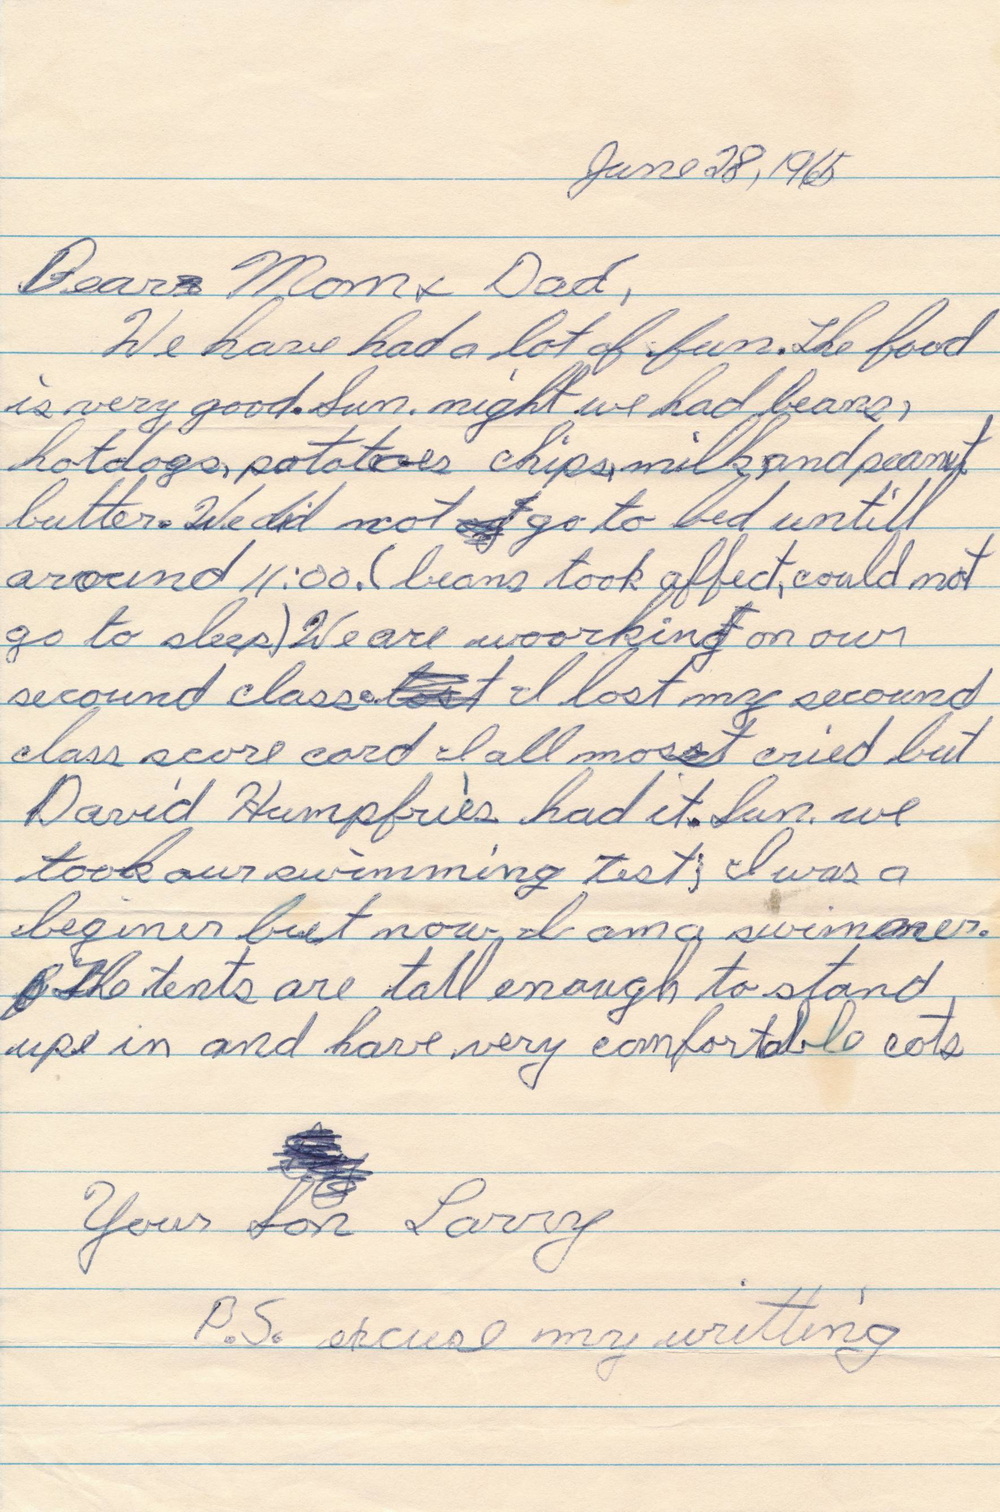 June 28, 1965
Dear Mom & Dad,
We have had a lot of fun. The food
is very good. Sun. night we had beans,
hotdogs, potatoes chips, milk, and peanut
butter. We did not go to bed untill
around 11:00. (beans took affect, could not
go to sleep) We are woorking on our
secound class. I lost my secound
class score card I all most cried but
David Humpfries had it. Sun. we
took our swimming test; I was a
beginer but now I am a swimmer.
The tents are tall enough to stand
up in and have very comfortable cots
Your Son Larry
P.S. excuse my writting